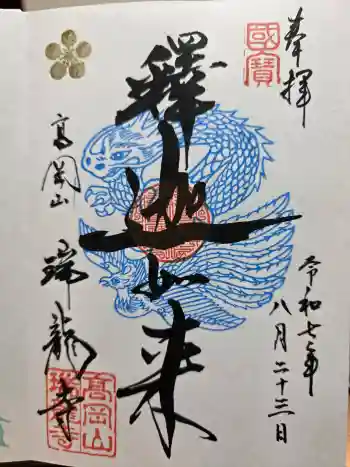 奉拝
國寶
釋迦如来
令和七年
八月二十三日
高岡山
瑞龍寺
高岡山
瑞龍寺